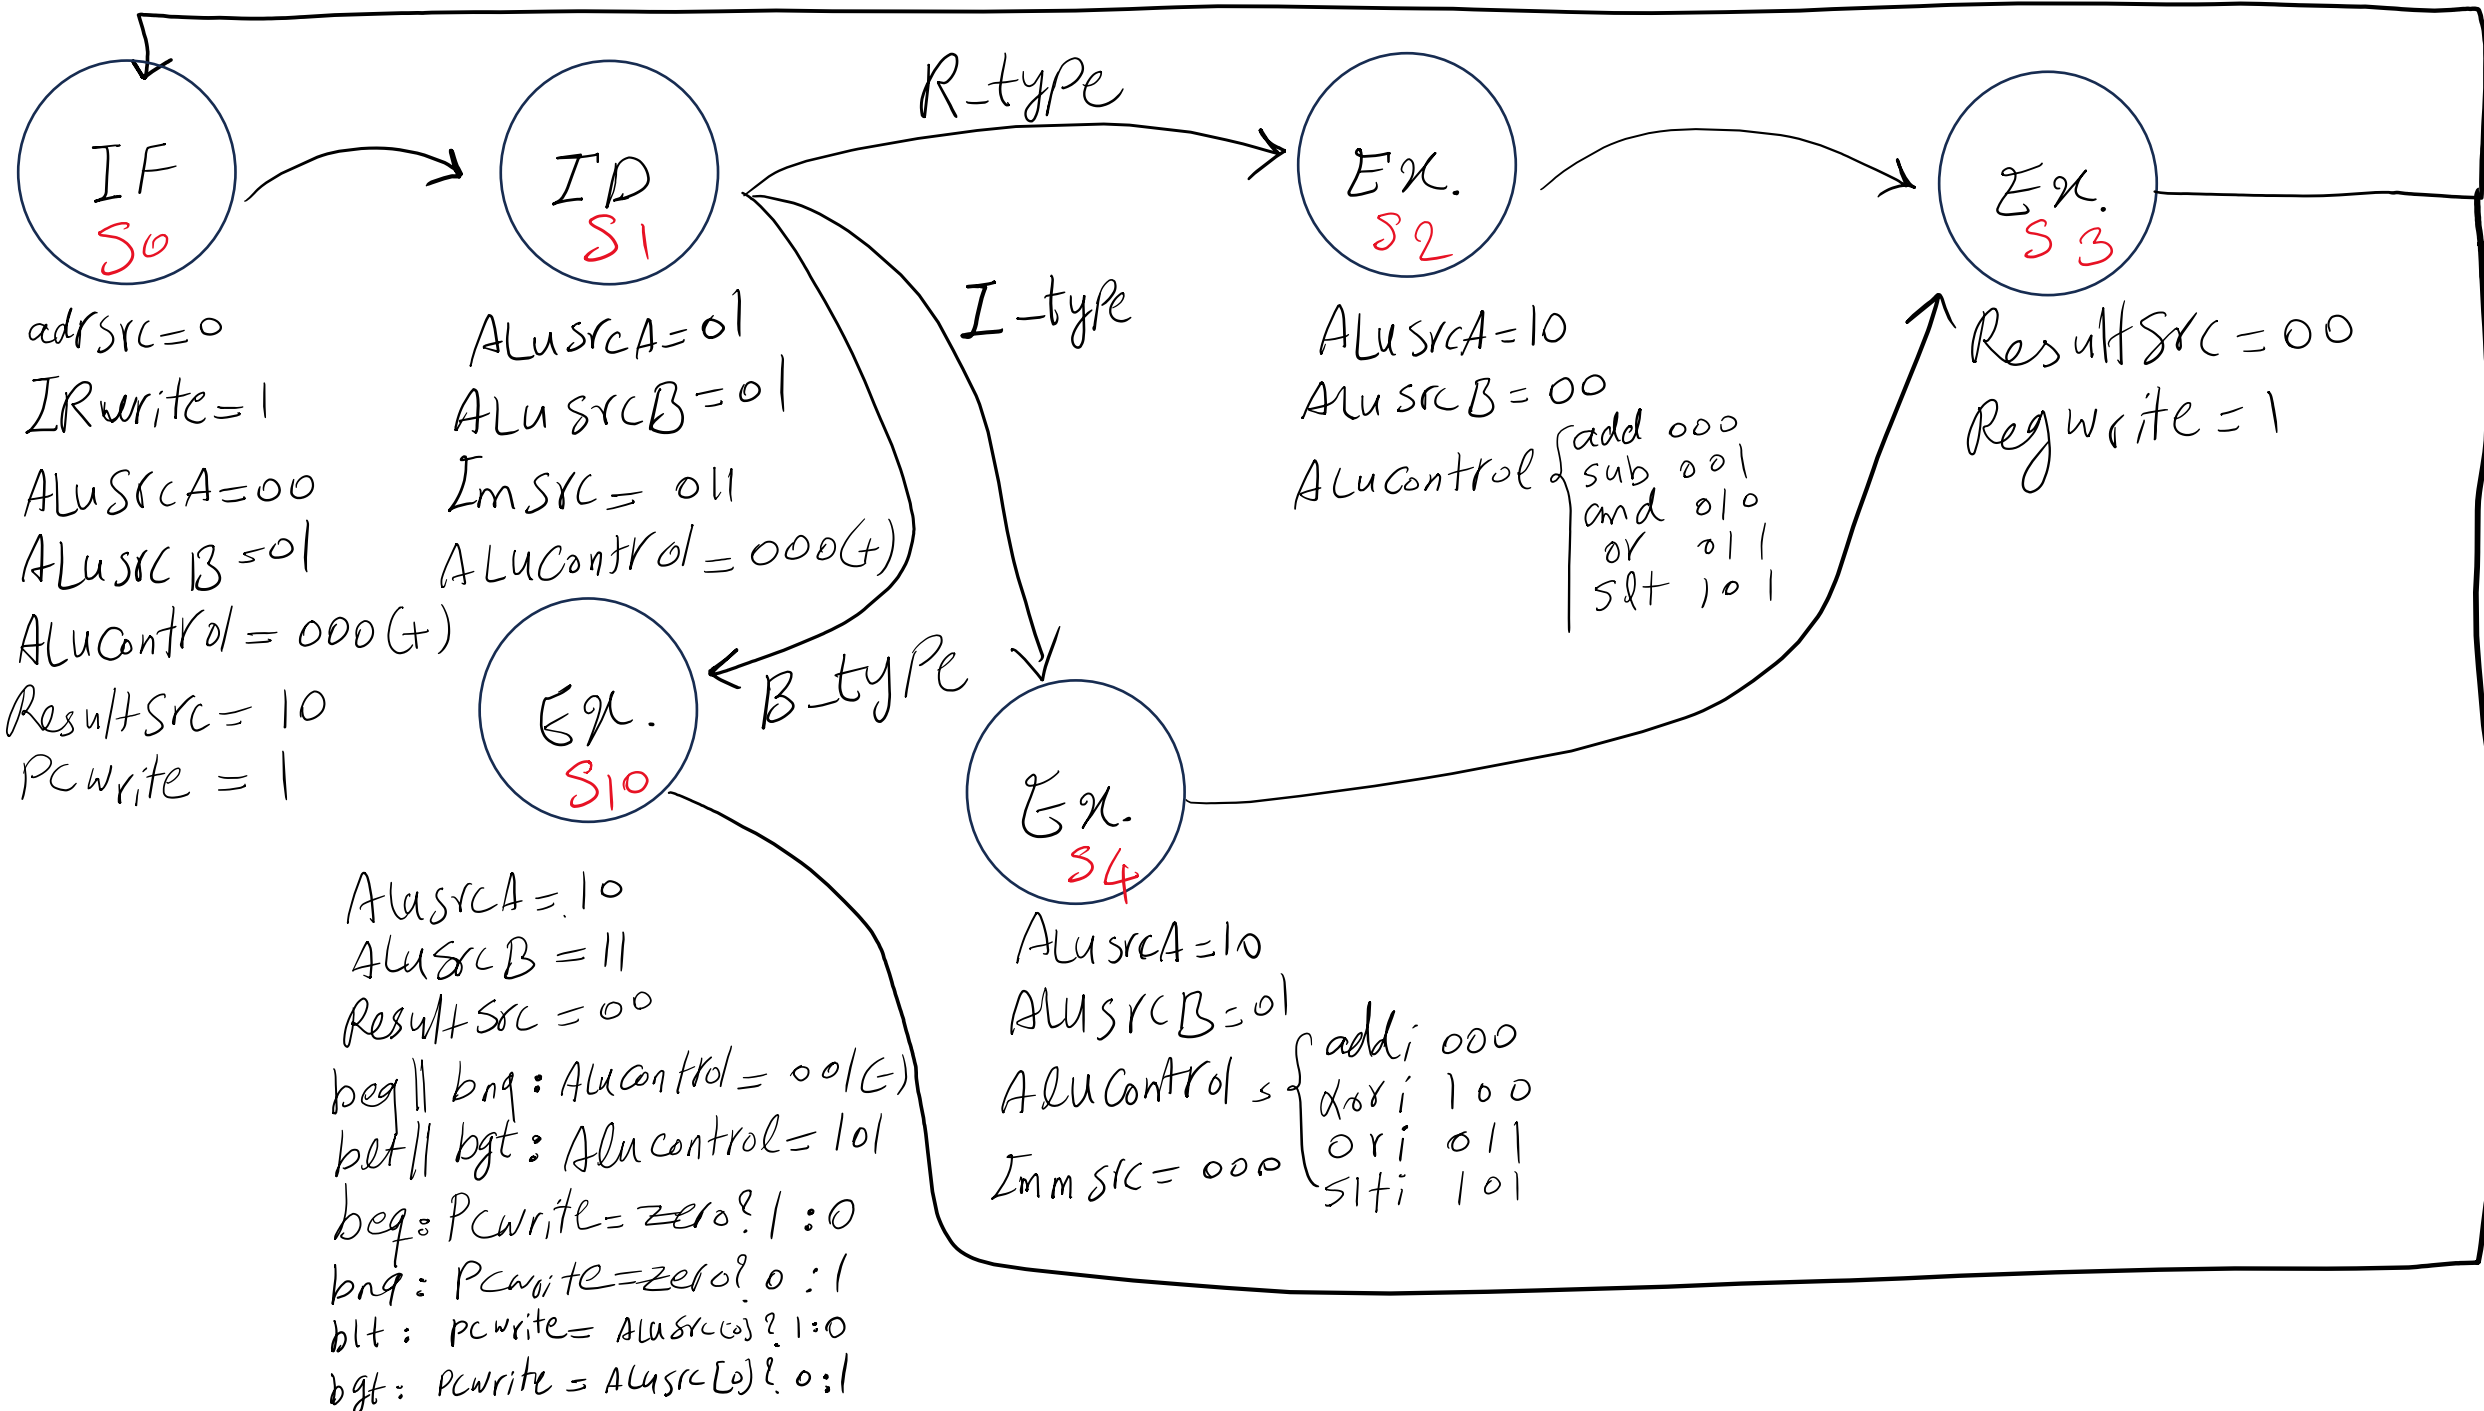 IF
S0
adrsrc=0
IRwrite=1
ALUSrcA=00
ALUsrcB=01
ALUcontrol=000(+)
ResultSrc=10
PCwrite=1
ID
S1
ALusrcA=01
ALuSrcB=01
Imsrc=011
ALUControl=000(+)
R_type
I_type
B_type
Ex.
S2
ALusrcA=10
ALusrcB=00
ALucontrol
add 000
sub 001
and 010
or 011
slt 101
Ex.
S3
ResultSrc=00
Regwrite=1
Ex.
S10
ALusrcA=10
ALusrcB=11
Resultsrc=00
beq|| bnq: ALucontrol=001(-)
blt|| bgt: Alucontrol=101
beq: PCwrite=zero? 1:0
bnq: PCwrite=zero? 0:1
blt: PCwrite=ALusrc[0]? 1:0
bgt: PCwrite=ALusrc[0]? 0:1
Ex.
S4
ALusrcA=10
ALUsrcB=01
ALUControl=
addi 000
xori 100
ori 011
slti 101
Immsrc=000